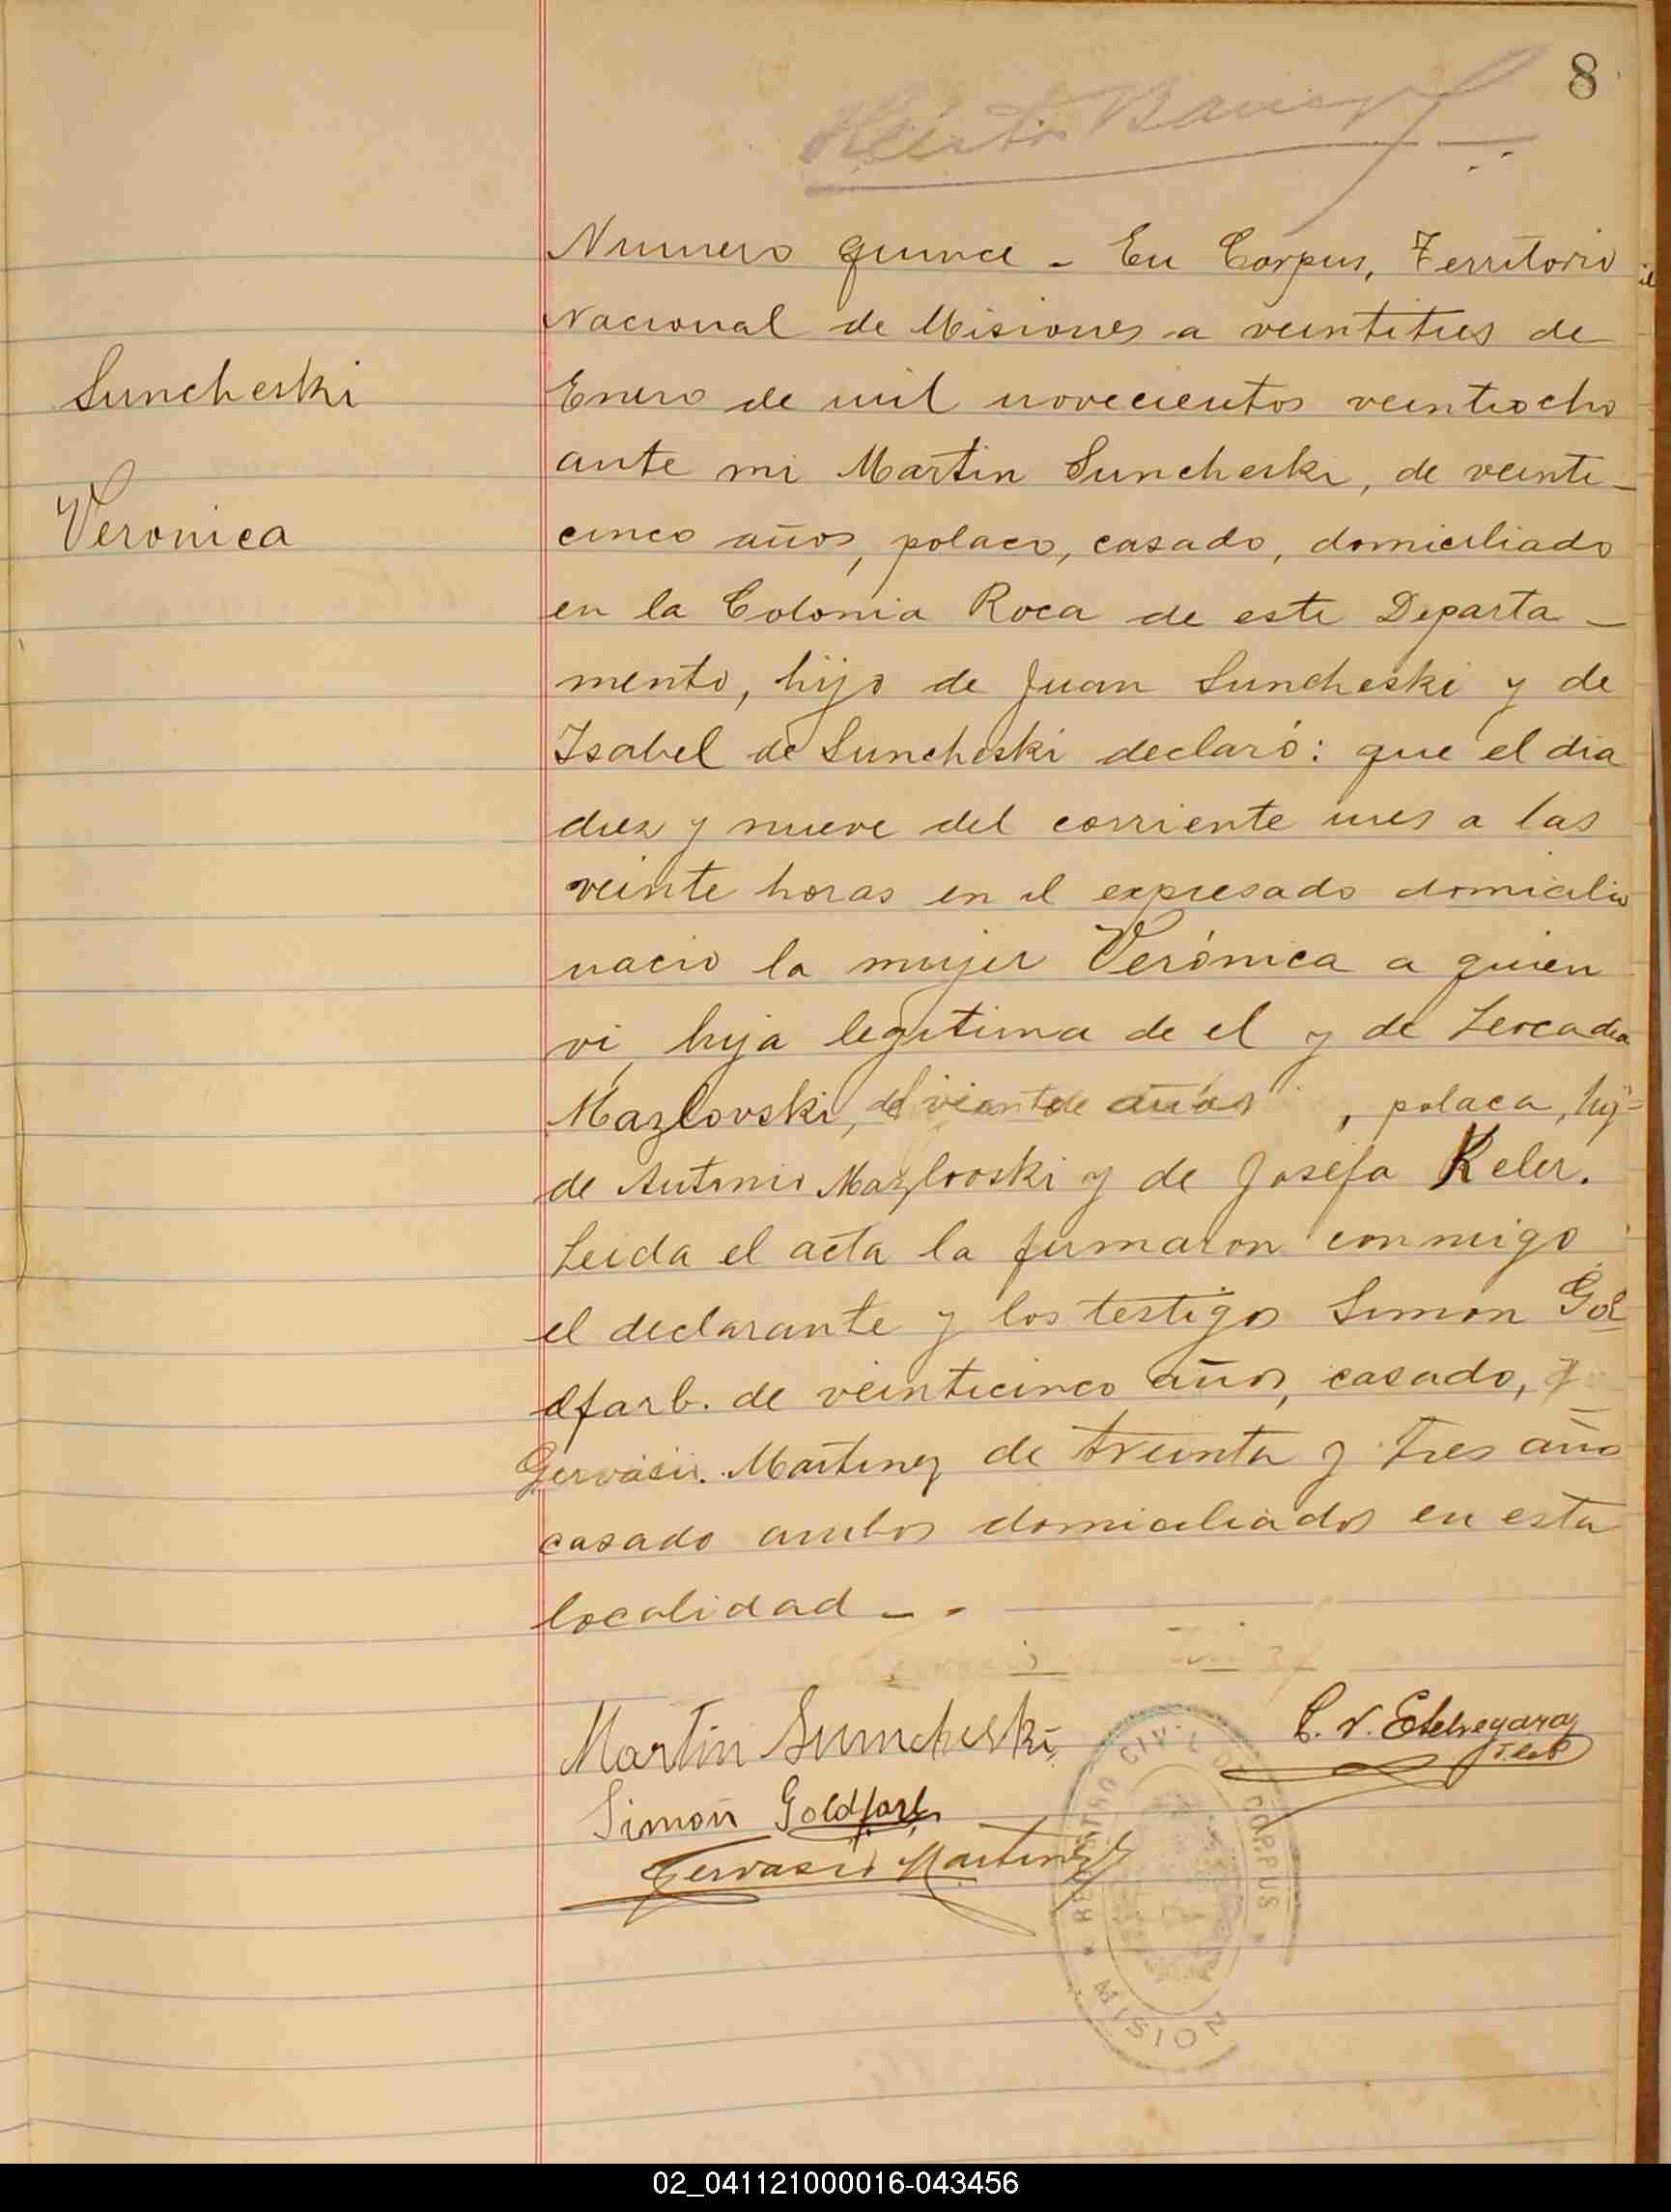 8
Numero quince - En Corpus, Territorio
Nacional de Misiones a veintitres de
Suncheski
Enero de mil novecientos veintiocho
ante mi Martin Suncheski, de veinti-
Veronica
cinco años, polaco, casado, domiciliado
en la Colonia Roca de este Departa-
mento, hijo de Juan Suncheski y de
Isabel de Suncheski declaró: que el dia
diez y nueve del corriente mes a las
veinte horas en el expresado domicilio
nacio la mujer Verónica a quien
vi, hija legitima de el y de Leocadia
Mazlovski, de años, polaca, hij=
de Antonio Mazlovski y de Josefa Keler.
Leida el acta la firmaron conmigo
el declarante y los testigos Simon Gol
dfarb. de veinticinco años, casado,
Gervasio Martinez de treinta y tres año
casado ambos domiciliados en esta
localidad - -
Martin Suncheski
C. V. Etchegaray
Simon Goldfarb
Gervasio Martinez
REGISTRO CIVIL DE CORPUS
MISION
02_041121000016-043456